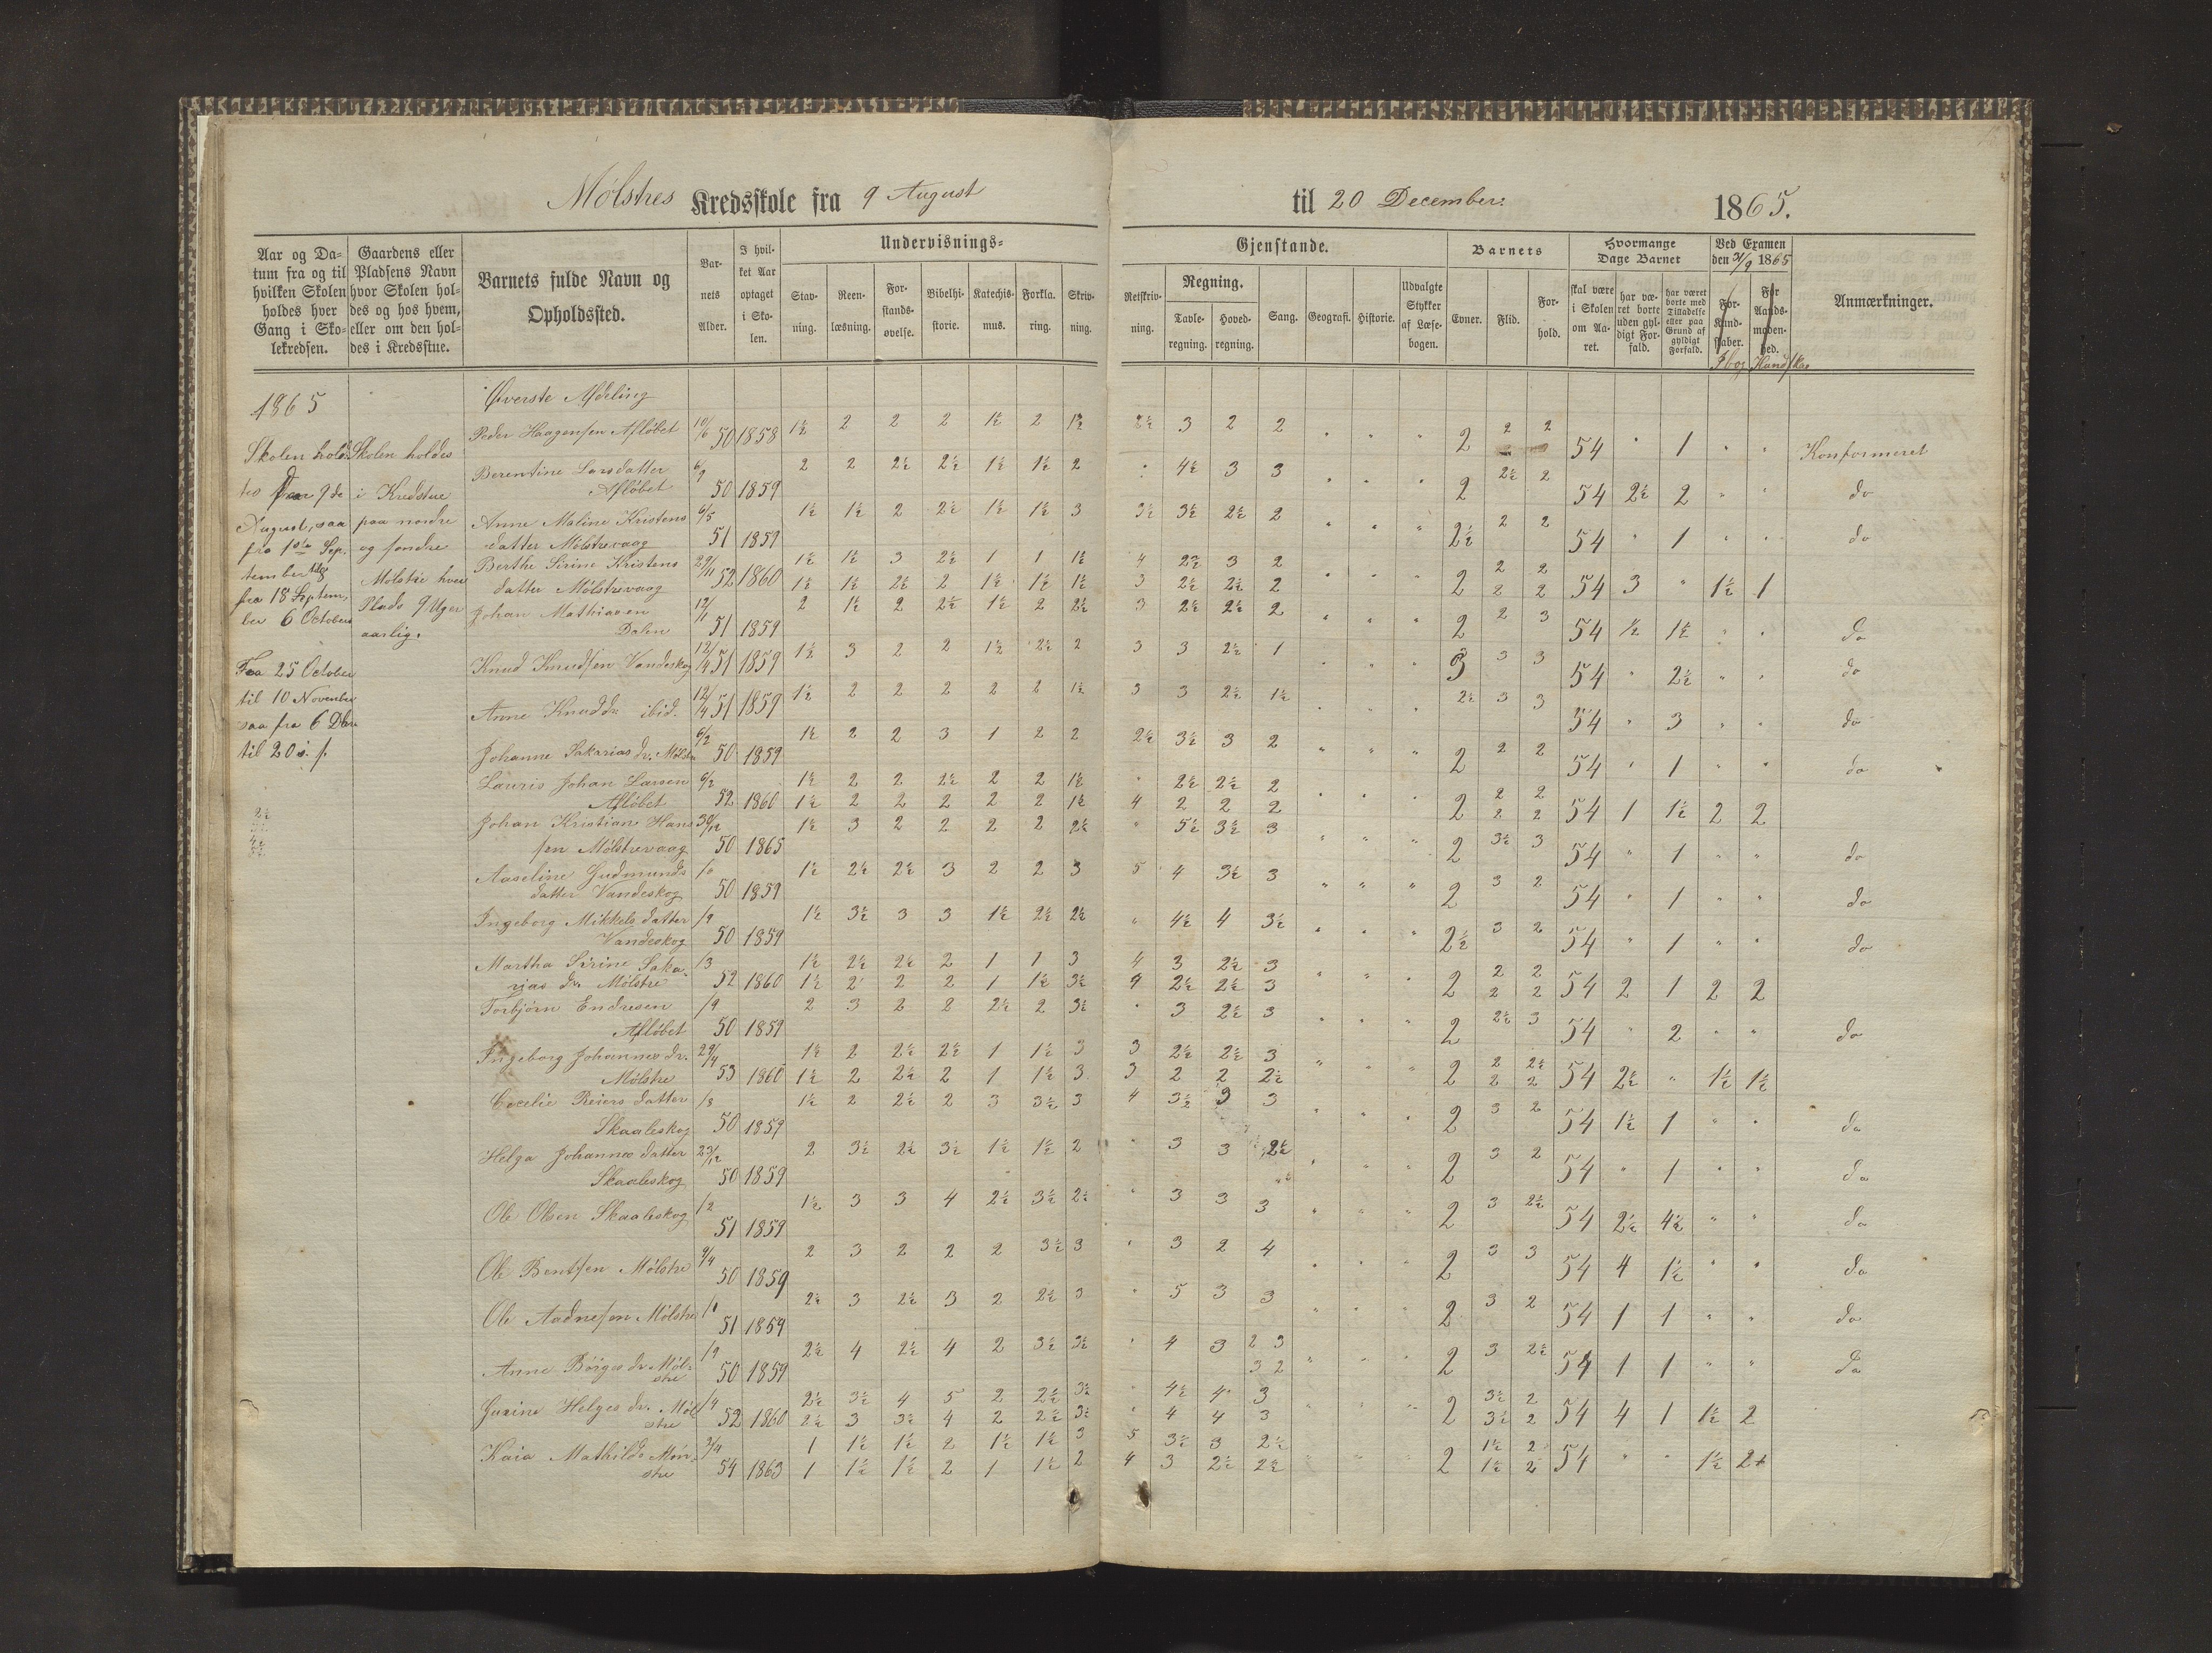 Mølstres Kredsskole fra 9 August til 20 December 1865.
Aar og Da-
tum fra og til
hvilken Skolen
holdes hver
Gang i Sko-
lekredsen.
Gaardens eller
Pladsens Navn
hvor Skolen hol-
des og hos hvem,
eller om den hol-
des i Kredsstue.
Barnets fulde Navn og
Opholdssted.
Bar-
nets
Alder.
I hvil-
ket Aar
optaget
i Sko-
len.
Undervisnings-
Stav-
ning.
Reen-
læsning.
For-
stands-
øvelse.
Bibelhi-
storie.
Katechis-
mus.
Forkla-
ring.
Skriv-
ning.
Gjenstande.
Retskriv-
ning.
Regning.
Tavle-
regning.
Hoved-
regning.
Sang.
Geografi.
Historie.
Udvalgte
Stykker
af Læse-
bogen.
Barnets
Evner.
Flid.
For-
hold.
Hvormange
Dage Barnet
skal være
i Skolen
om Aa-
ret.
har væ-
ret borte
uden gyl-
digt For-
fald.
har været
borte med
Tilladelse
eller paa
Grund af
gyldigt
Forfald.
Ved Examen
den 21/9 1865
For
Kund-
skaber.
For
Aands-
moden-
hed.
Anmærkninger.
1865
Skolen hold-
tes fra 9de
August, saa
fra 1ste Sep-
tember til
fra 18 Septem,
ber 6 October
Fra 25 October
til 10 November
saa fra 6 Dbr
til 20 s. s.
Skolen holdes
i Kredstue
paa nordre
og søndre
Mølstre hver
Plads 9 Uger
aarlig.
Øverste Afdeling
Peder Haagensen Afløbet 10/6 50 1858 1½ 2 2 2 1½ 2 1½ 2½ 3 2 2 " " " 2 2 2 54 " 1 " " Konformeret
Berentine Larsdatter
Afløbet 6/9 50 1859 2 2 2½ 2½ 1½ 1½ 2 " 4½ 3 3 " " " 2 2½ 2 54 2½ 2 " " do
Anne Maline Kristens
datter Mølstrevaag 6/5 51 1859 1½ 1½ 2 2½ 1½ 1½ 3 3½ 3½ 2½ 2 " " " 2½ 2 2 54 " 1 " " do
Berthe Sirine Kristens 29/11 52 1860 1½ 1½ 3 2½ 1 1 1½ 4 2½ 3 2 " " " 2 2 2 54 3 " 1½ 1
datter Mølstrevaag 1½ 1½ 2½ 2 1½ 1½ 1½ 3 2½ 2½ 2 2 2
Johan Mathiasen
Dalen 12/11 51 1859 2 1½ 2 2½ 1½ 2 2½ 3 2½ 2½ 2 " " " 2 2 3 54 ½ 1½ " " do
Knud Knudsen Vandeskog 12/4 51 1859 1½ 3 2 2 1½ 2½ 2 3 3 2½ 1 " " " 3 3 3 54 " 2½ " " do
Anne Knudsdr ibid. 12/4 51 1859 1½ 2 2 2 2 2 1½ 3 3 2½ 1½ " " " 2½ 3 3 54 " 3 " " do
Johanne Sakarias dr. Mølstre 6/2 50 1859 1½ 2 2 3 1 2 2 2½ 3½ 3 2 " " " 2 2 2 54 " 1 " " do
Lauris Johan Larsen 6/2 1½ 2 2 2½ 2 2 1½ " 2½ 2½ 2 " " " 2 2 2 54 1 1½ 2 2
Afløbet 52 1860 1½ 2 2 2 2 2 1½ 4 2 2 2 2 2
Johan Kristian Hans
sen Mølstrevaag 30/12 50 1865 1½ 3 2 2 2 2 2½ " 5½ 3½ 3 " " " 2 3½ 3 54 " 1 " " do
Aaseline Gudmunds
datter Vandeskog 50 1859 1½ 2½ 2½ 3 2 2 3 5 4 3½ 3 " " " 2 3 2 54 " 1 " " do
Ingeborg Mikkelsdatter
Vandeskog /9 50 1859 1½ 3½ 3 3 1½ 2½ 2½ " 4½ 4 3½ " " " 2½ 3 2 54 " 1 " " do
Martha Sirine Saka- /3 1½ 2½ 2½ 2 1 1 3 4 3 2½ 3 " " " 2 2 2 54 2 1 2 2
rias dr. Mølstre 52 1860 1½ 2 2 2 1 1½ 3½ 4 2½ 2½ 3 2 2
Torbjørn Endresen
Afløbet /9 50 1859 2 3 2 2 2½ 2 3½ " 3 2½ 3 " " " 2 2½ 3 54 " 2 " " do
Ingeborg Johannes dr. 29/4 1½ 2 2½ 2½ 1 1½ 3 3 2½ 2½ 3 " " " 2 2 2½ 54 2½ " 1½ 1½
Mølstre 53 1860 1½ 2 2½ 2 1 1½ 3 3 2 2 2½ 2 2
Cecelie Reiersdatter
Skaaleskog /8 50 1859 1½ 2 2½ 2 3 3½ 3 4 3½ 3 3 " " " 2 3 2 54 1½ 1 " " do
Helga Johannesdatter
Skaaleskog 23/12 50 1859 2 3½ 2½ 3½ 1½ 1½ 2 " 3 3 2½ " " " 2 3 2 54 " 1 " " do
Ole Olsen Skaaleskog /2 51 1859 1½ 3 3 4 2½ 3½ 2½ " 3 3 3 " " " 2 3 2½ 54 2½ 4½ " " do
Ole Bentsen Mølstre 9/4 50 1859 2 3 2 2 2 3½ 3 " 3 2 4 " " " 2 3 3 54 4 1½ " " do
Ole Aadnesen Mølstre /1 51 1859 2½ 3 2½ 3 2 2½ 3 " 5 3 3 " " " 2 3 2 54 1 1 " " do
Anne Børges dr. Møl-
stre /9 50 1859 2½ 4 2½ 4 2 3½ 3½ " 4 3 2 3 3 2 " " " 2 3 2½ 54 1 1 " " do
Gurine Helges dr. Møl /4 2½ 3½ 4 5 2 2½ 3½ " 4½ 4 3 " " " 2 3½ 2 54 4 1 1½ 2
stre 52 1860 2½ 3 3½ 4 2 2½ 3½ " 4 4 3 3½ 2
Kaia Mathilde Møn- 2/4 1 1½ 1½ 2 1½ 1½ 3 5 3½ 3 2½ " " " 2 1½ 2 54 " " 1½ 2+
stre 54 1863 1 1½ 1½ 2 1 1½ 2 4 3 2½ 2½ 1½ 2